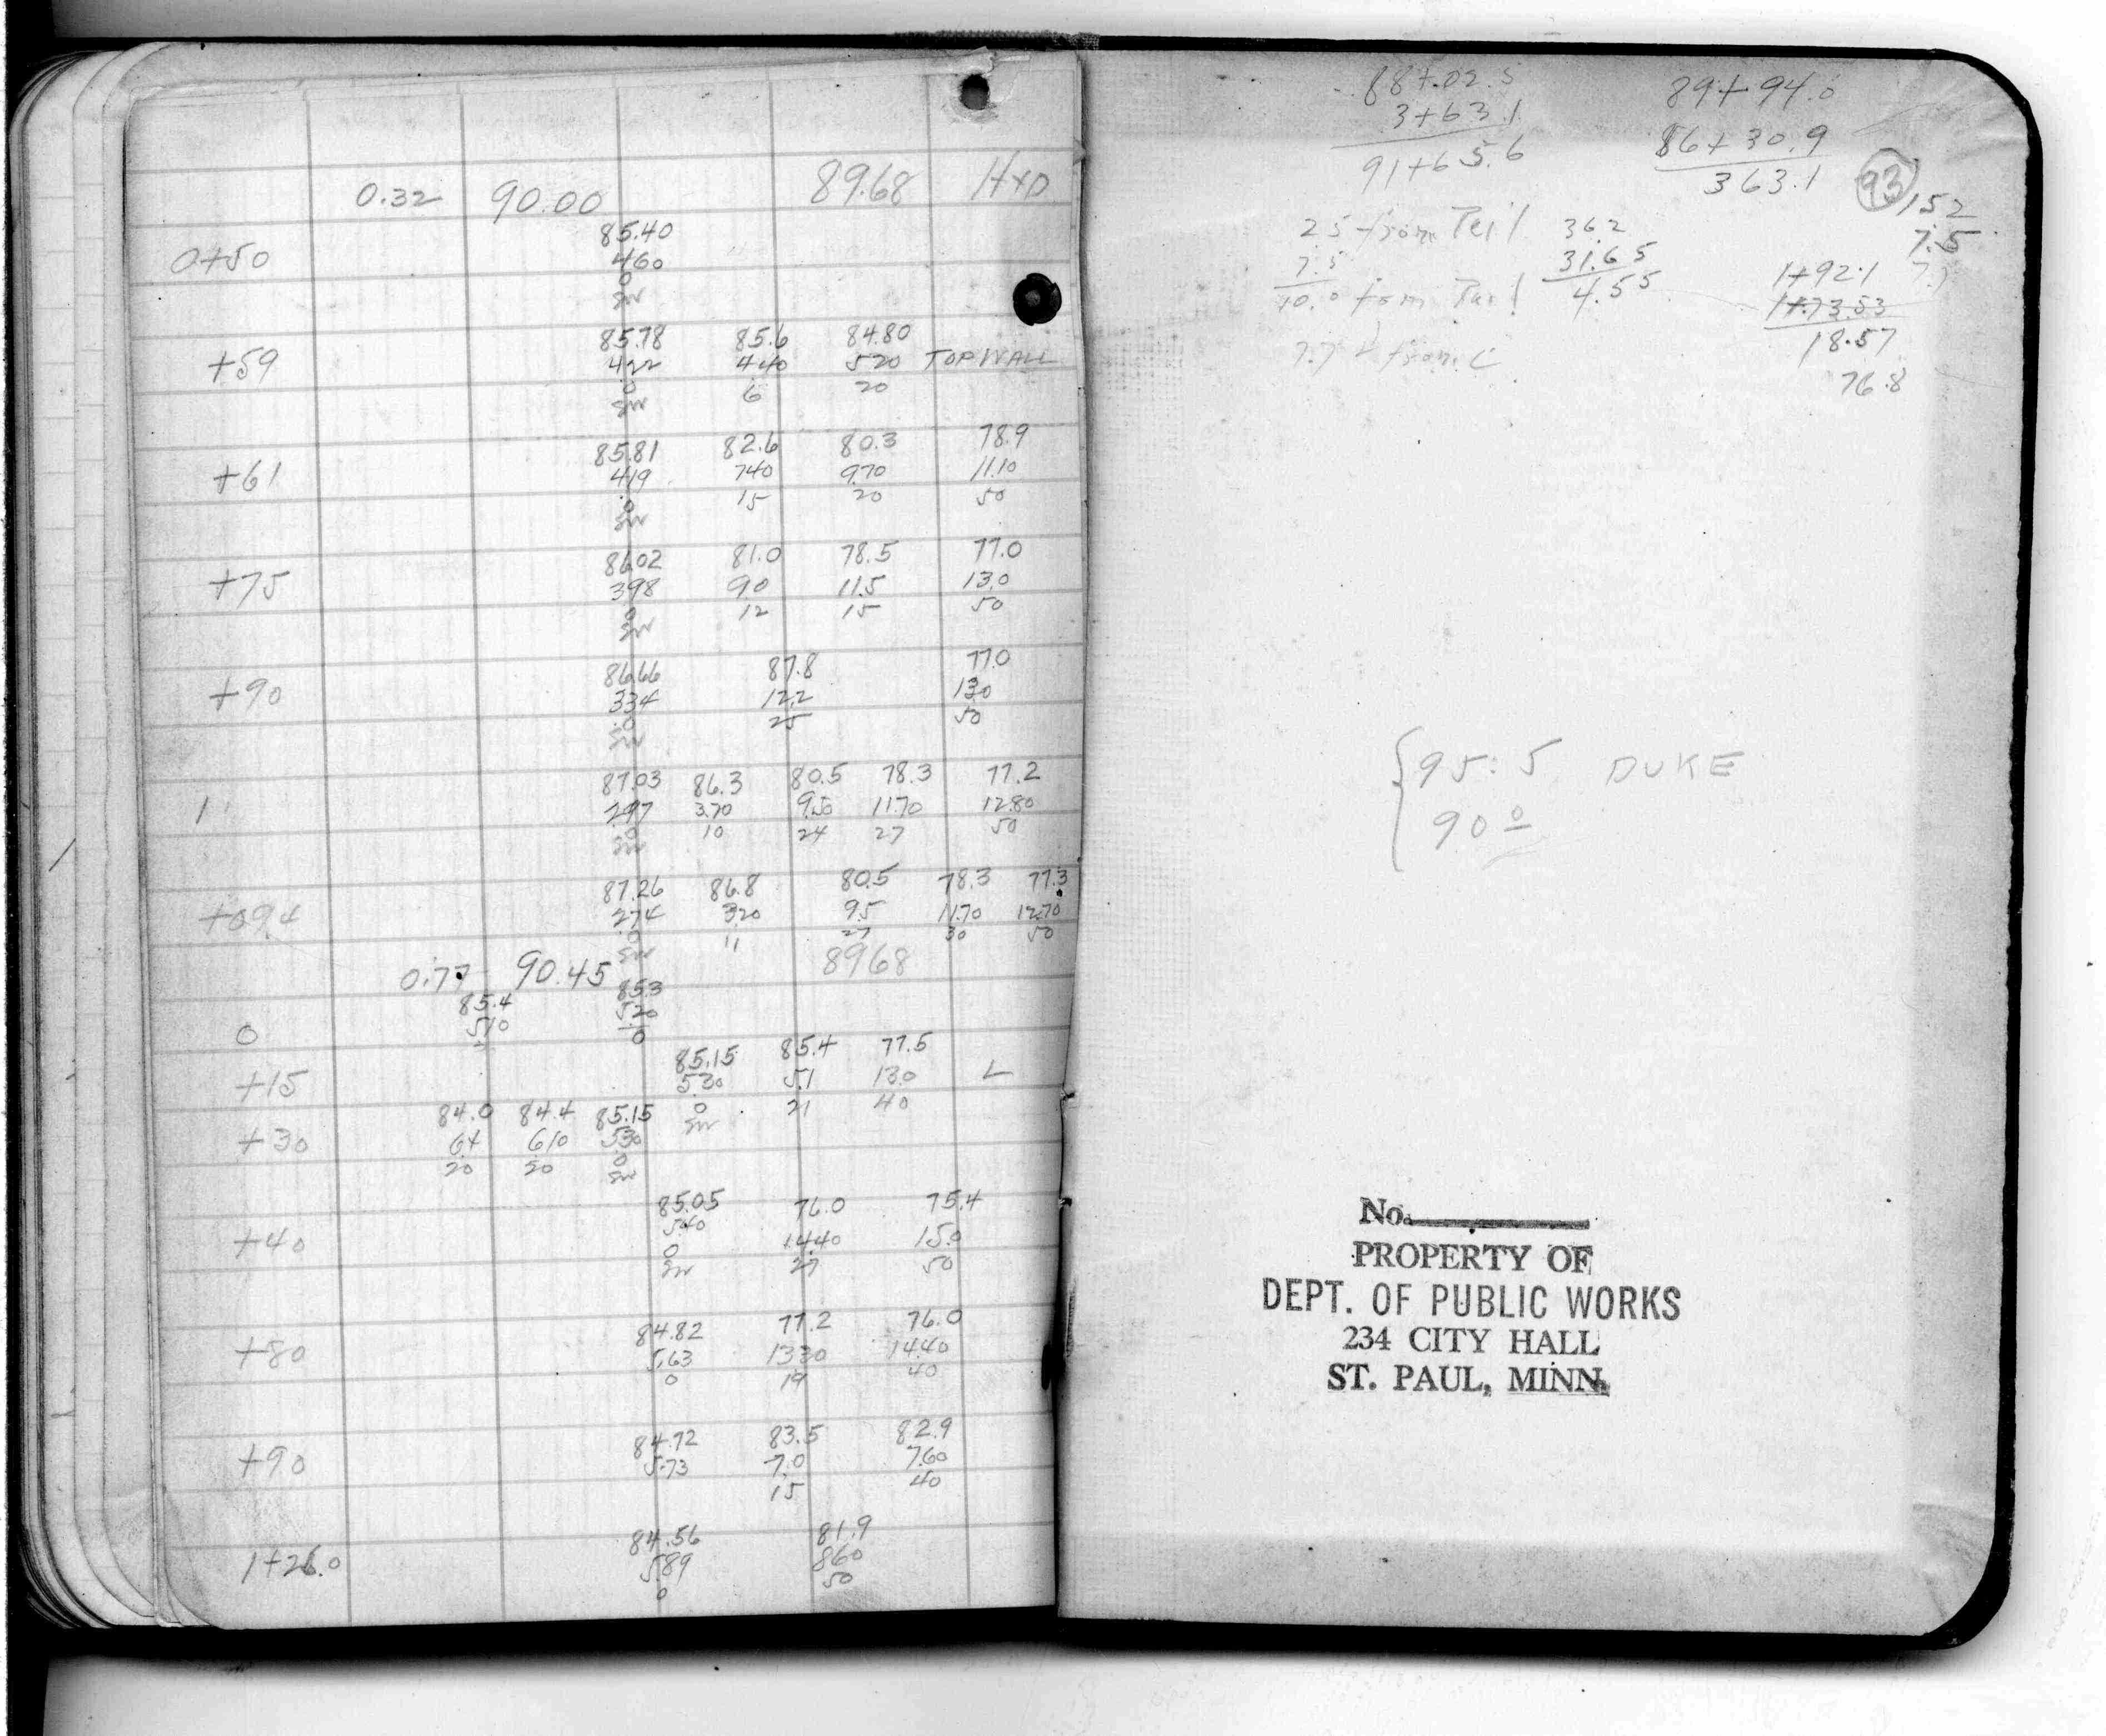 0.32 90.00 89.68 HYD
85.40
0+50 460
0
SW
85.78 85.6 84.80
+59 422 440 520 TOP WALL
0 6 20
SW
85.81 82.6 80.3 78.9
+61 419 740 970 11.10
0 15 20 50
SW
86.02 81.0 78.5 77.0
+75 398 90 11.5 13.0
0 12 15 50
SW
86.66 87.8 77.0
+90 334 12.2 130
0 25 50
SW
87.03 86.3 80.5 78.3 77.2
1 297 3.70 9.50 11.70 12.80
0 10 24 27 50
SW
87.26 86.8 80.5 78.3 77.3
+09.4 274 320 9.5 11.70 12.70
0 11 27 30 50
SW
0.77 90.45 8968
85.4 85.3
0 510 520
0
85.15 85.4 77.5
+15 530 5.1 13.0 L
0 21 40
SW
84.0 84.4 85.15
+30 64 610 530
20 20 0
SW
85.05 76.0 75.4
+40 540 14.40 15.0
0 27 50
SW
84.82 77.2 76.0
+80 5.63 1330 14.40
0 19 40
84.72 83.5 82.9
+90 5.73 7.0 7.60
15 40
84.56 81.9
1+26.0 5.89 860
0 50
88+02.5
3+63.1
91+65.6
89+94.0
86+30.9
363.1
93
152
7.5
25 from
7.5
10.0 from
7.7 from C
36.2
31.65
4.55
1+92.1
1+73.53
18.57
76.8
7.7
95.5 DUKE
90 0
No.
PROPERTY OF
DEPT. OF PUBLIC WORKS
234 CITY HALL
ST. PAUL, MINN.